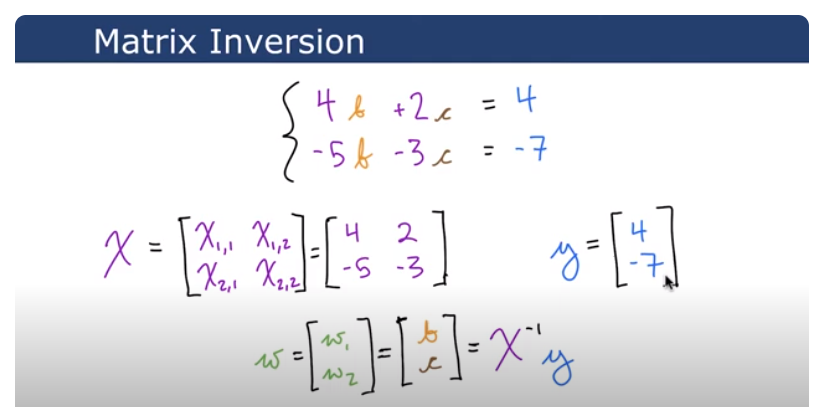 Matrix Inversion
{ 4b +2c = 4
-5b -3c = -7
X = [X₁,₁ X₁,₂ X₂,₁ X₂,₂] = [4 2 -5 -3] y = [4 -7]
w = [w₁ w₂] = [b c] = X⁻¹y